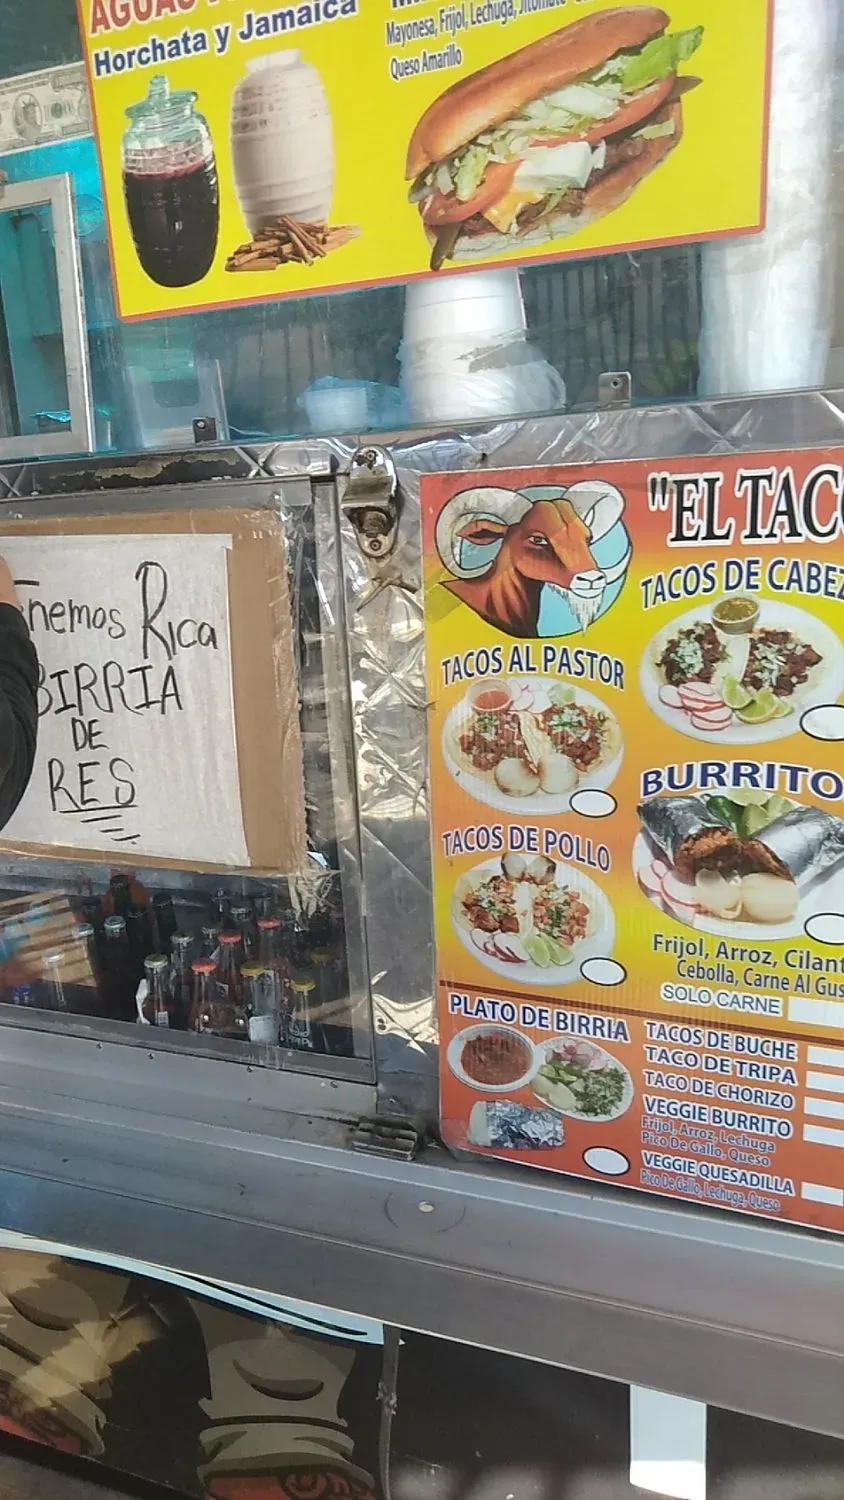 AGUAS
Horchata y Jamaica
Mayonesa, Frijol, Lechuga, Jitomate
Queso Amarillo
Tenemos Rica
BIRRIA
DE
RES
"EL TACO
TACOS DE CABEZ
TACOS AL PASTOR
BURRITO
TACOS DE POLLO
Frijol, Arroz, Cilant
Cebolla, Carne Al Gus
SOLO CARNE
PLATO DE BIRRIA
TACOS DE BUCHE
TACO DE TRIPA
TACO DE CHORIZO
VEGGIE BURRITO
Frijol, Arroz, Lechuga
Pico De Gallo, Queso
VEGGIE QUESADILLA
Pico De Gallo, Lechuga, Queso